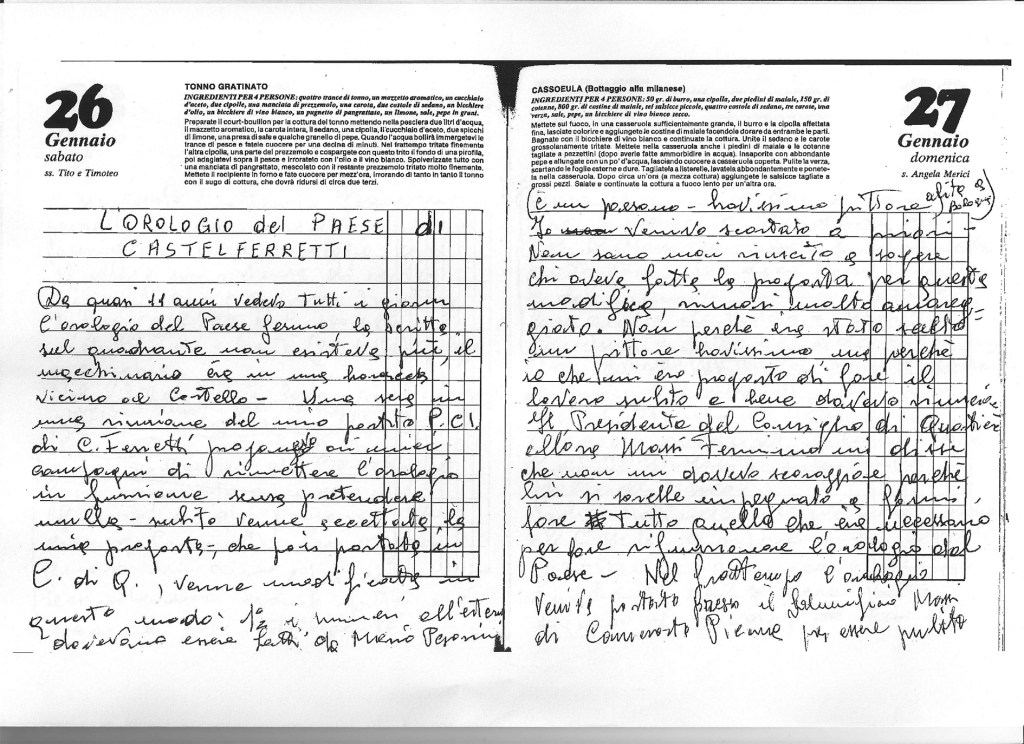 26
Gennaio
sabato
ss. Tito e Timoteo
TONNO GRATINATO
INGREDIENTI PER 4 PERSONE: quattro trance di tonno, un mazzetto aromatico, un cucchiaio
d'aceto, due cipolle, una manciata di prezzemolo, una carota, due costole di sedano, un bicchiere
d'olio, un bicchiere di vino bianco, un pugnetto di pangrattato, un limone, sale, pepe in grani.
Preparate il court-bouillon per la cottura del tonno mettendo nella pesciera due litri d'acqua,
il mazzetto aromatico, la carota intera, il sedano, una cipolla, il cucchiaio d'aceto, due spicchi
di limone, una presa di sale e qualche granello di pepe. Quando l'acqua bollirà immergetevi le
trance di pesce e fatele cuocere per una decina di minuti. Nel frattempo tritate finemente
l'altra cipolla, una parte del prezzemolo e cospargete con questo trito il fondo di una pirofila,
poi adagiatevi sopra il pesce e irroratelo con l'olio e il vino bianco. Spolverizzate tutto con
una manciata di pangrattato, mescolato con il restante prezzemolo tritato molto finemente.
Mettete il recipiente in forno e fate cuocere per mezz'ora, irrorando di tanto in tanto il tonno
con il sugo di cottura, che dovrà ridursi di circa due terzi.
L'OROLOGIO del PAESE di
CASTELFERRETTI
Da quasi 11 anni vedevo tutti i giorni
l'orologio del Paese fermo, la scritta
sul quadrante non esisteva più, il
macchinario era in una baracca
vicino al Castello - Una sera in
una riunione del mio partito P.C.I.
di C. Ferretti proposi ai miei
compagni di rimettere l'orologio
in funzione senza pretendere
nulla - subito venne accettata la
mia proposta, che poi portata in
C. di Q., venne modificata in
questo modo: 1° i numeri all'esterno
dovevano essere fatti da Mario
27
Gennaio
domenica
s. Angela Merici
CASSOEULA (Bottaggio alla milanese)
INGREDIENTI PER 4 PERSONE: 50 gr. di burro, una cipolla, due piedini di maiale, 150 gr. di
cotenne, 800 gr. di costine di maiale, sei salsicce piccole, quattro costole di sedano, tre carote, una
verza, sale, pepe, un bicchiere di vino bianco secco.
Mettete sul fuoco, in una casseruola sufficientemente grande, il burro e la cipolla affettata
fine, lasciate colorire e aggiungete le costine di maiale facendole dorare da entrambe le parti.
Bagnate con il bicchiere di vino bianco e continuate la cottura. Unite il sedano e le carote
grossolanamente tritate. Mettete nella casseruola anche i piedini di maiale e le cotenne
tagliate a pezzettini (dopo averle fatte ammorbidire in acqua). Insaporite con abbondante
pepe e allungate con un po' d'acqua, lasciando cuocere a casseruola coperta. Pulite la verza,
scartando le foglie esterne e dure. Tagliatela a listerelle, lavatela abbondantemente e ponete-
la nella casseruola. Dopo circa un'ora (a mezza cottura) aggiungete le salsicce tagliate a
grossi pezzi. Salate e continuate la cottura a fuoco lento per un'altra ora.
(è un paesano - bravissimo pittore abita a
Bologna)
Io venivo scartato a priori -
Non sono mai riuscito a sapere
chi aveva fatta la proposta per questa
modifica, rimasi molto amareg-
giato. Non perché era stato scelto
un pittore bravissimo ma perché
io che mi ero proposto di fare il
lavoro subito e bene dovevo rinunciare
Il Presidente del Consiglio di Quartiere
allora Massi Fermino mi disse
che non mi dovevo scoraggiare perché
lui si sarebbe impegnato a farmi
fare tutto quello che era necessario
per fare rifunzionare l'orologio del
Paese - Nel frattempo l'orologio
venive portato presso il Salumificio Massi
di Camerata Picena per essere pulito